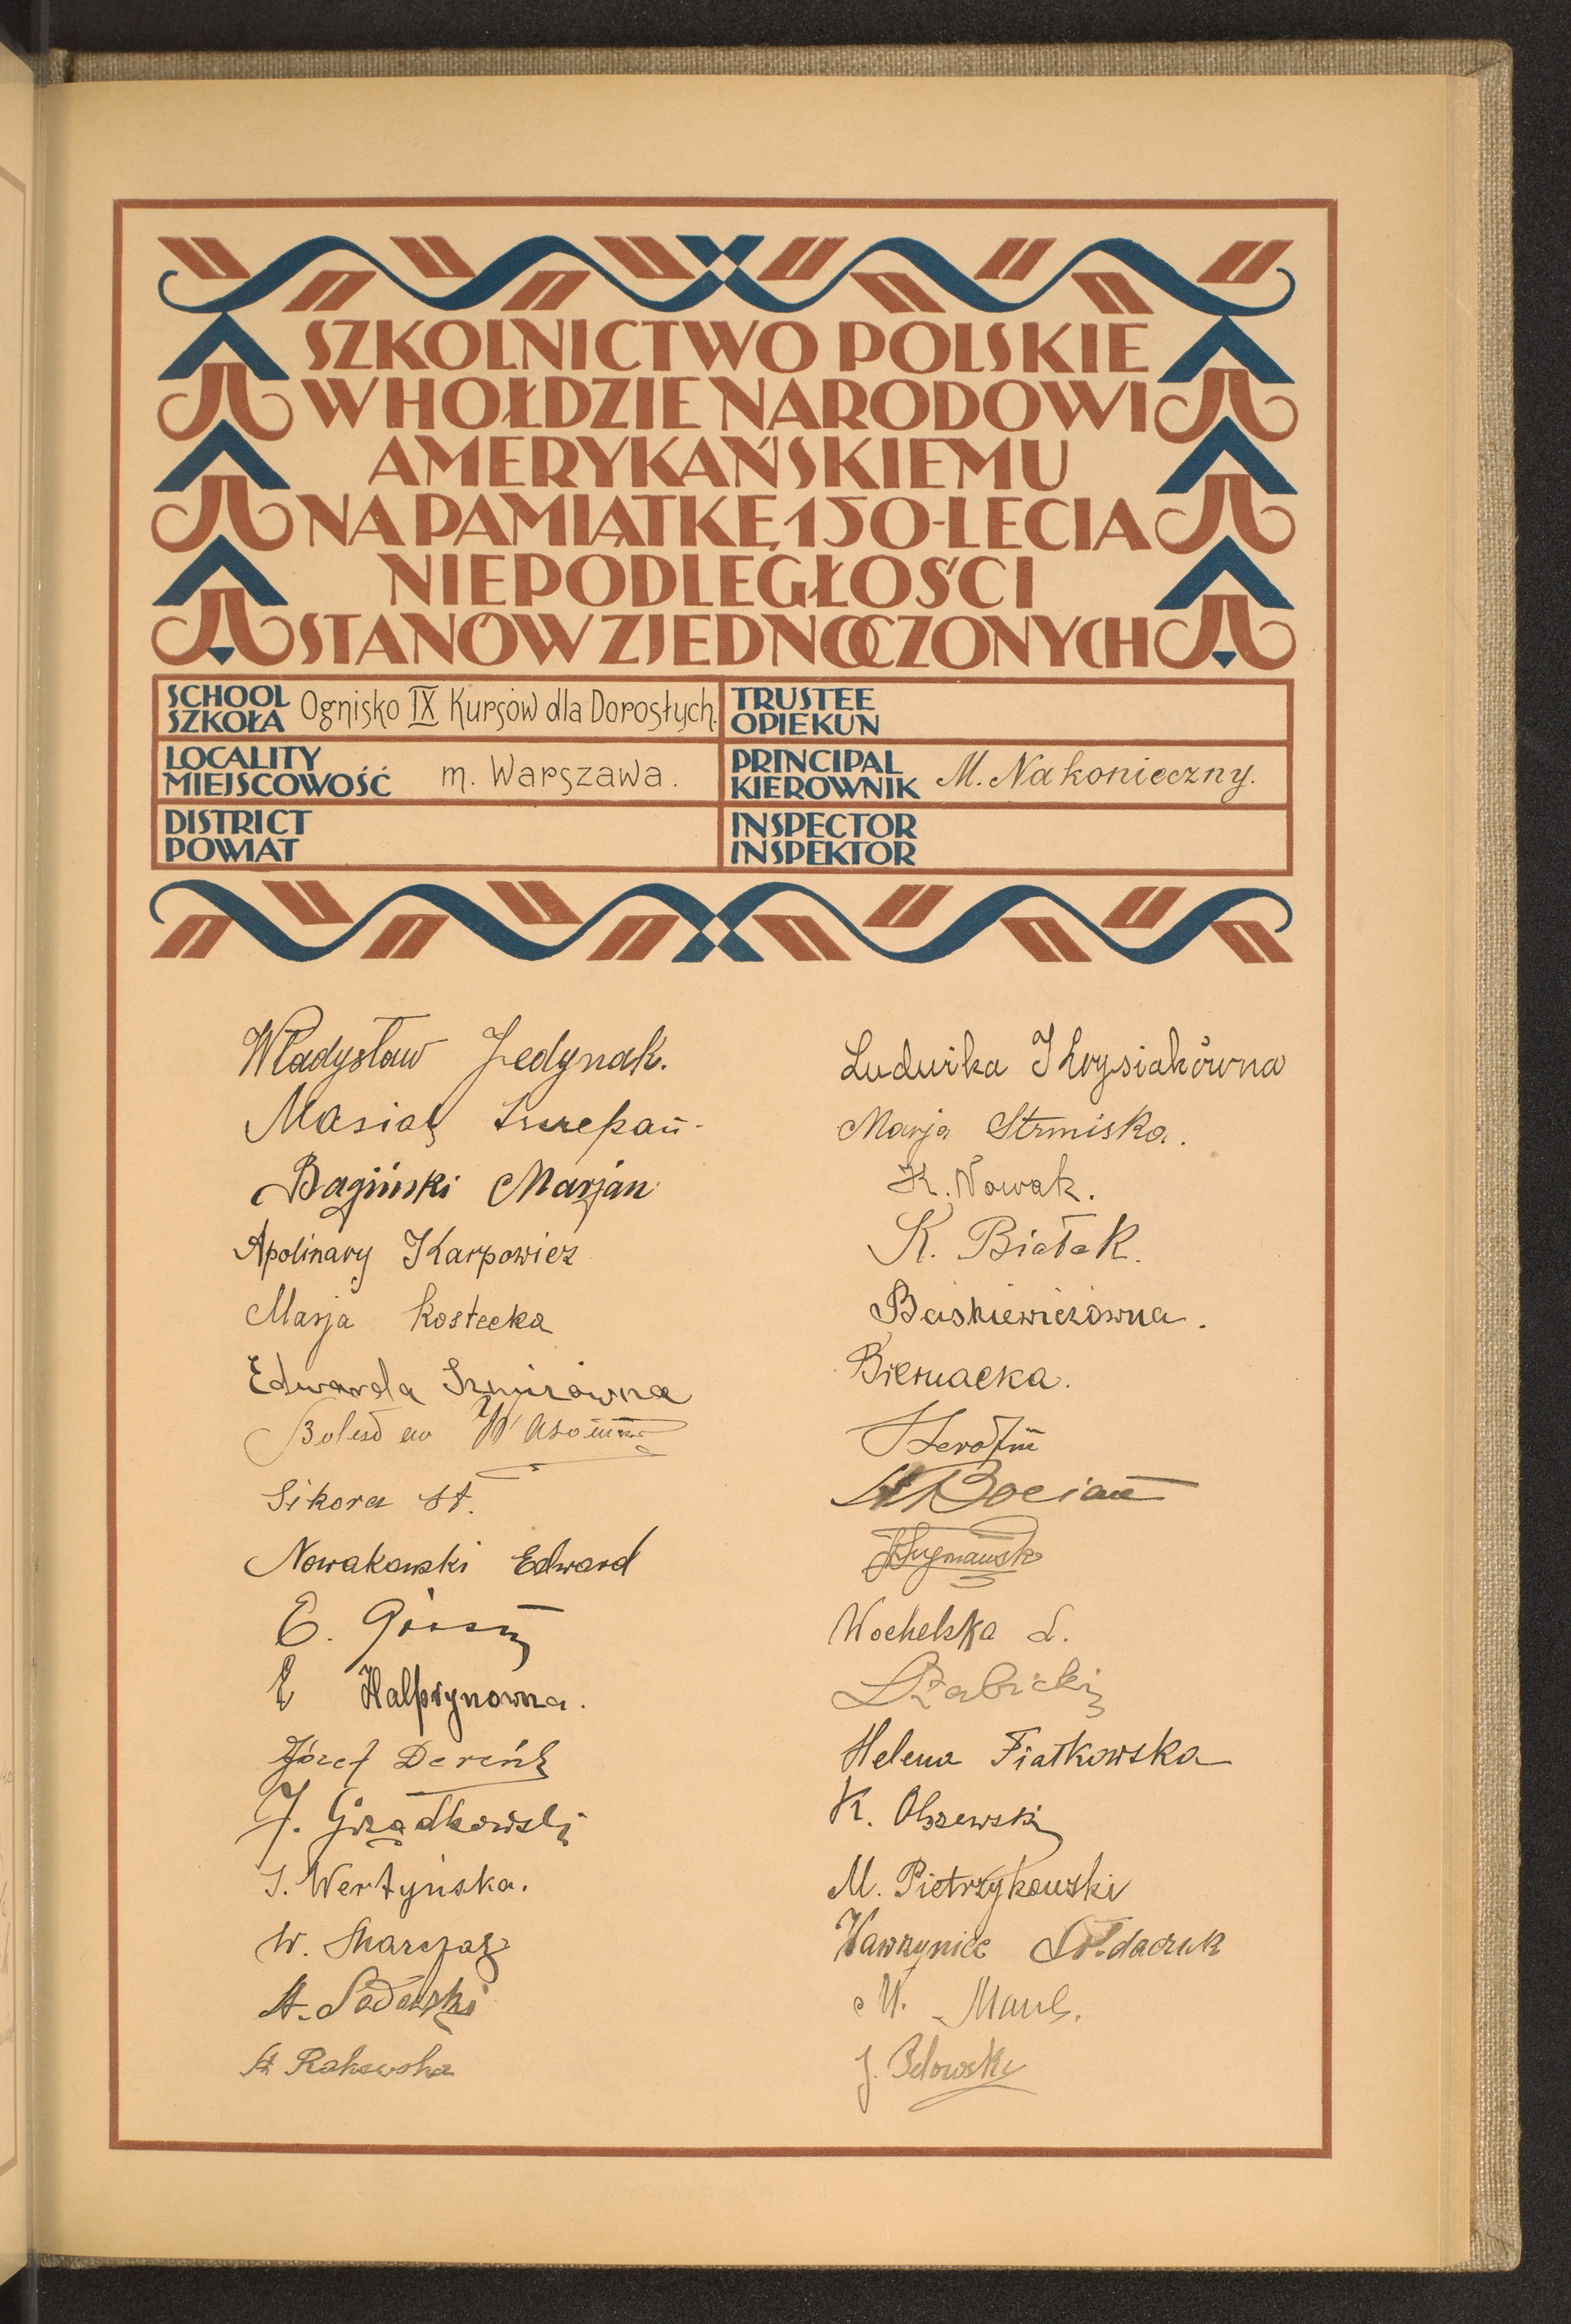 SZKOLNICTWO POLSKIE
W HOŁDZIE NARODOWI
AMERYKAŃSKIEMU
NA PAMIĄTKĘ 150-LECIA
NIEPODLEGŁOŚCI
STANÓW ZJEDNOCZONYCH
SCHOOL
SZKOŁA Ognisko IX Kursów dla Dorosłych.
TRUSTEE
OPIEKUN
LOCALITY
MIEJSCOWOŚĆ m. Warszawa.
PRINCIPAL
KIEROWNIK M. Nakonieczny.
DISTRICT
POWIAT
INSPECTOR
INSPEKTOR
Władysław Jedynak.
Masiak Szczepan
Bagiński Marjan
Apolinary Karpowicz
Marja Kostecka
Edwarda
Bolesław
Sikora St.
Nowakowski Edward
E.
E Halprynowna.
Józef
J. Grządkowski
J. Wertyńska.
W.
St. Sadowski
St. Rakowska
Ludwika Krysiakówna
Marja Strmiska.
K. Nowak.
K. Białek.
Baśkiewiczówna.
Biernacka.
Serafin
Bocian
Wochelska L.
Żabicki
Helena Fiatkowska
K. Olszewski
M. Pietrzykowski
Wawrzyniec Sołdaczuk
M.
J. Belowski